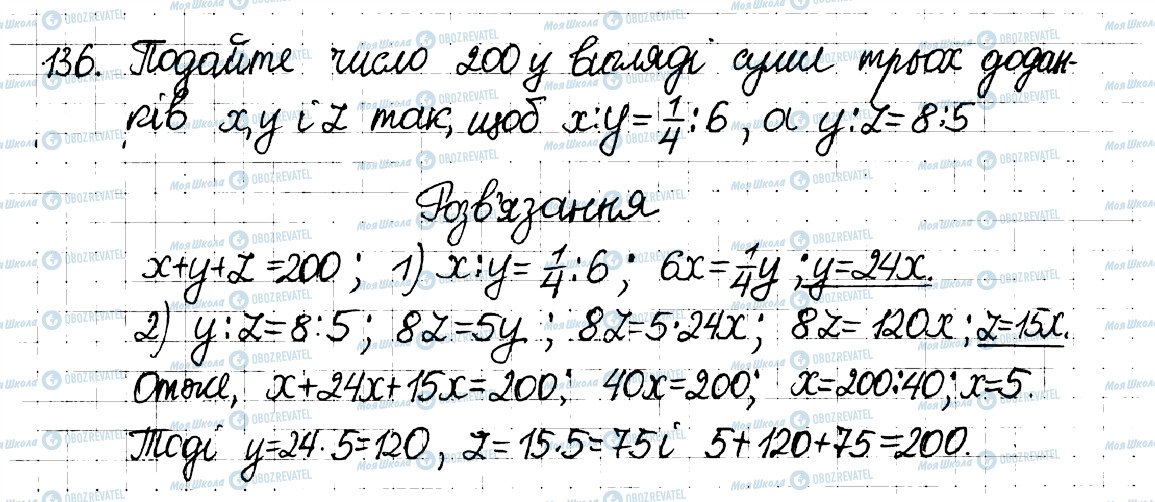 136. Подайте число 200 у вигляді суми трьох додан-
ків x, y і z так, щоб x:y = 1/4 : 6, а y:z = 8:5
Розв'язання
x+y+z = 200; 1) x:y = 1/4 : 6; 6x = 1/4 y; y = 24x.
2) y:z = 8:5; 8z = 5y; 8z = 5·24x; 8z = 120x; z = 15x.
Отже, x+24x+15x = 200; 40x = 200; x = 200:40; x = 5.
Тоді y = 24·5 = 120, z = 15·5 = 75 і 5+120+75 = 200.